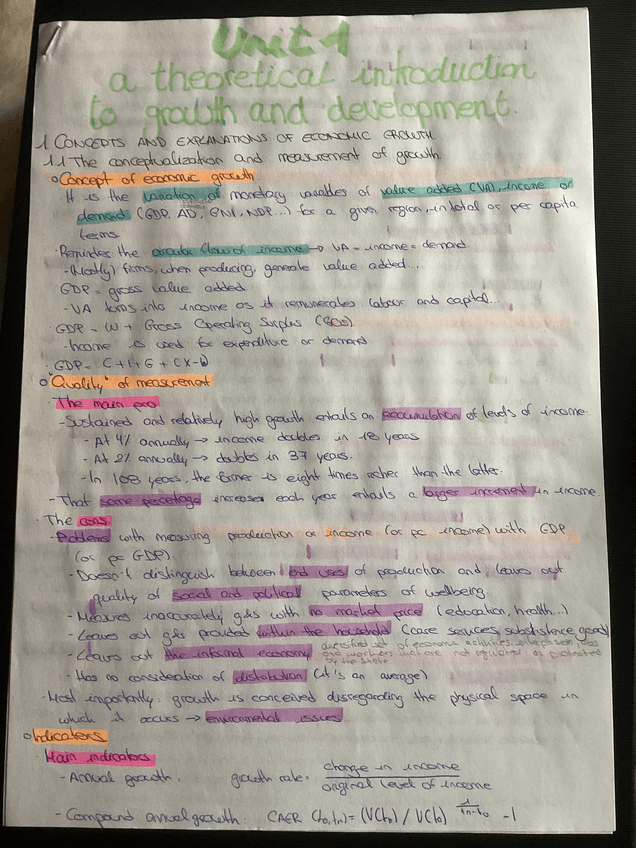 Unit 1
a theoretical introduction
to growth and development.
1 CONCEPTS AND EXPLANATIONS OF ECONOMIC GROWTH
1.1 The conceptualization and measurement of growth
Concept of economic growth
It is the variation of monetary variables of value added (VA), income or
demand (GDP, AD, GNI, NDP...) for a given region, in total or per capita
terms
· Reminder the circular flow of income → VA = income = demand
- (Mostly) firms, when producing, generate value added...
GDP = gross value added
- VA turns into income as it remunerates labour and capital...
· GDP = W + Gross Operating Surplus (GOS)
- Income is used for expenditure or demand
· GDP = C+I+G+(X-M)
"Quality" of measurement
· The main pro
- Sustained and relatively high growth entails an accumulation of levels of income.
- At 4% annually → income doubles in 18 years
- At 2% annually → doubles in 37 years.
- In 108 years, the former is eight times richer than the latter.
- That same percentage increases each year entails a larger increment in income.
· The cons
- Problems with measuring production or income (or pc income) with GDP
(or pc GDP)
- Doesn't distinguish between end uses of production and leaves out
quality of social and political parameters of wellbeing.
- Measures inaccurately g&s with no market price (education, health...)
- Leaves out g&s provided within the household (care services, subsistence goods)
- Leaves out the informal economy diversified set of economic activities, enterprises, jobs
and workers that are not regulated or protected
by the state
- Has no consideration of distribution (it's an average)
- Most importantly: growth is conceived disregarding the physical space in
which it occurs → enviromental issues
Indicators
· Main indicators
- Annual growth. growth rate = change in income / original level of income
- Compound annual growth: CAGR (t0,tn) = (V(tn) / V(t0)) 1/tn-t0 - 1